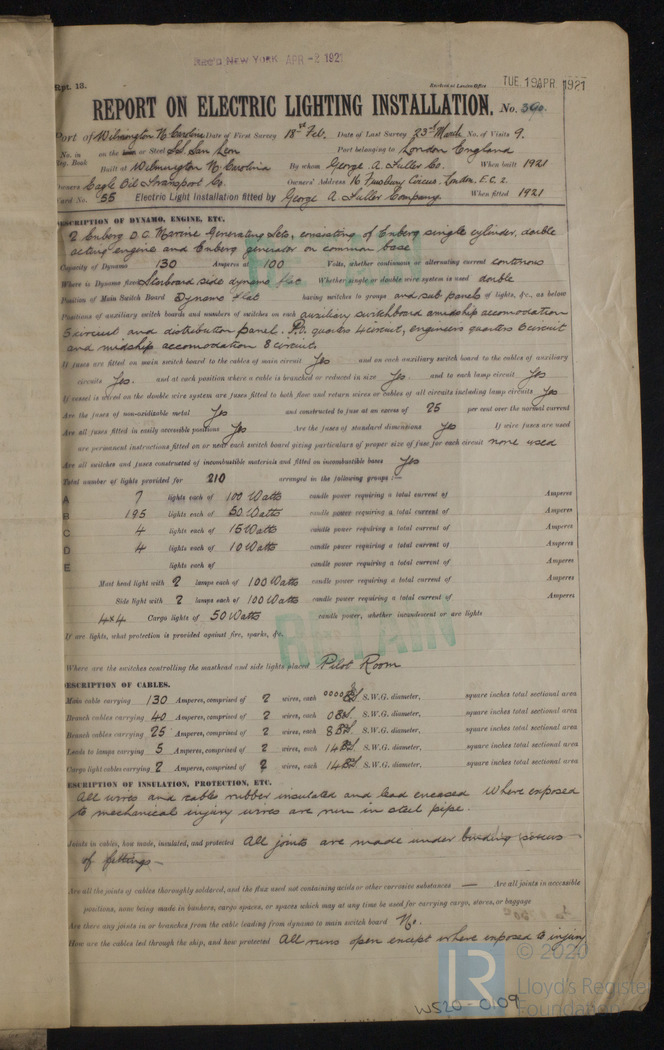 REC'D NEW YORK APR -2 1921
Rpt. 13.
Received at London Office
TUE. 19 APR 1921
REPORT ON ELECTRIC LIGHTING INSTALLATION. No. 360.
Port of Wilmington N. Carolina Date of First Survey 18th Feb. Date of Last Survey 23rd March No. of Visits 9.
No. in Reg. Book on the Iron or Steel S.S. San Leon Port belonging to London England
Built at Wilmington N. Carolina By whom George A. Fuller Co. When built 1921
Owners Eagle Oil Transport Co. Owners' Address 16 Finsbury Circus London, E.C. 2.
Card No. 55 Electric Light Installation fitted by George A. Fuller Company. When fitted 1921
DESCRIPTION OF DYNAMO, ENGINE, ETC.
2 Enberg D.C. Marine Generating Sets, consisting of Enberg single cylinder, double
acting engine and Enberg generator on common base
Capacity of Dynamo 130 Amperes at 100 Volts, whether continuous or alternating current continous
Where is Dynamo fixed Starboard side dynamo flat Whether single or double wire system is used double
Position of Main Switch Board Dynamo flat having switches to groups and sub panels of lights, &c., as below
Positions of auxiliary switch boards and numbers of switches on each auxiliary switchboard amidship accomodation
5 circuit and distribution panel. P.O. quarters 4 circuit, engineers quarters 6 circuit
and midship accomodation 8 circuit.
If fuses are fitted on main switch board to the cables of main circuit Yes and on each auxiliary switch board to the cables of auxiliary
circuits Yes. and at each position where a cable is branched or reduced in size Yes and to each lamp circuit Yes
If vessel is wired on the double wire system are fuses fitted to both flow and return wires or cables of all circuits including lamp circuits Yes
Are the fuses of non-oxidizable metal Yes and constructed to fuse at an excess of 25 per cent over the normal current
Are all fuses fitted in easily accessible positions Yes Are the fuses of standard dimensions Yes If wire fuses are used
are permanent instructions fitted on or near each switch board giving particulars of proper size of fuse for each circuit none used
Are all switches and fuses constructed of incombustible materials and fitted on incombustible bases Yes
Total number of lights provided for 210 arranged in the following groups :—
A 7 lights each of 100 Watts candle power requiring a total current of Amperes
B 195 lights each of 50 Watts candle power requiring a total current of Amperes
C 4 lights each of 15 Watts candle power requiring a total current of Amperes
D 4 lights each of 10 Watts candle power requiring a total current of Amperes
E lights each of candle power requiring a total current of Amperes
Mast head light with 2 lamps each of 100 Watts candle power requiring a total current of Amperes
Side light with 2 lamps each of 100 Watts candle power requiring a total current of Amperes
Cargo lights of 50 Watts candle power, whether incandescent or arc lights
If arc lights, what protection is provided against fire, sparks, &c.
RETAIN
Where are the switches controlling the masthead and side lights placed Pilot Room
DESCRIPTION OF CABLES.
Main cable carrying 130 Amperes, comprised of 2 wires, each 0000 S.W.G. diameter, square inches total sectional area
Branch cables carrying 40 Amperes, comprised of 2 wires, each 0 S.W.G. diameter, square inches total sectional area
Branch cables carrying 25 Amperes, comprised of 2 wires, each 8 S.W.G. diameter, square inches total sectional area
Leads to lamps carrying 5 Amperes, comprised of 2 wires, each 14 S.W.G. diameter, square inches total sectional area
Cargo light cables carrying 2 Amperes, comprised of 2 wires, each 14 S.W.G. diameter, square inches total sectional area
DESCRIPTION OF INSULATION, PROTECTION, ETC.
All wires and cables rubber insulated and lead encased Where exposed
to mechanical injury wires are run in steel pipe.
Joints in cables, how made, insulated, and protected All joints are made under binding screws
of fittings —
Are all the joints of cables thoroughly soldered, and the flux used not containing acids or other corrosive substances — Are all joints in accessible
positions, none being made in bunkers, cargo spaces, or spaces which may at any time be used for carrying cargo, stores, or baggage
Are there any joints in or branches from the cable leading from dynamo to main switch board No.
How are the cables led through the ship, and how protected All runs open except where exposed to injury
© 2020
LR
Lloyd's Register
Foundation
W520-0109